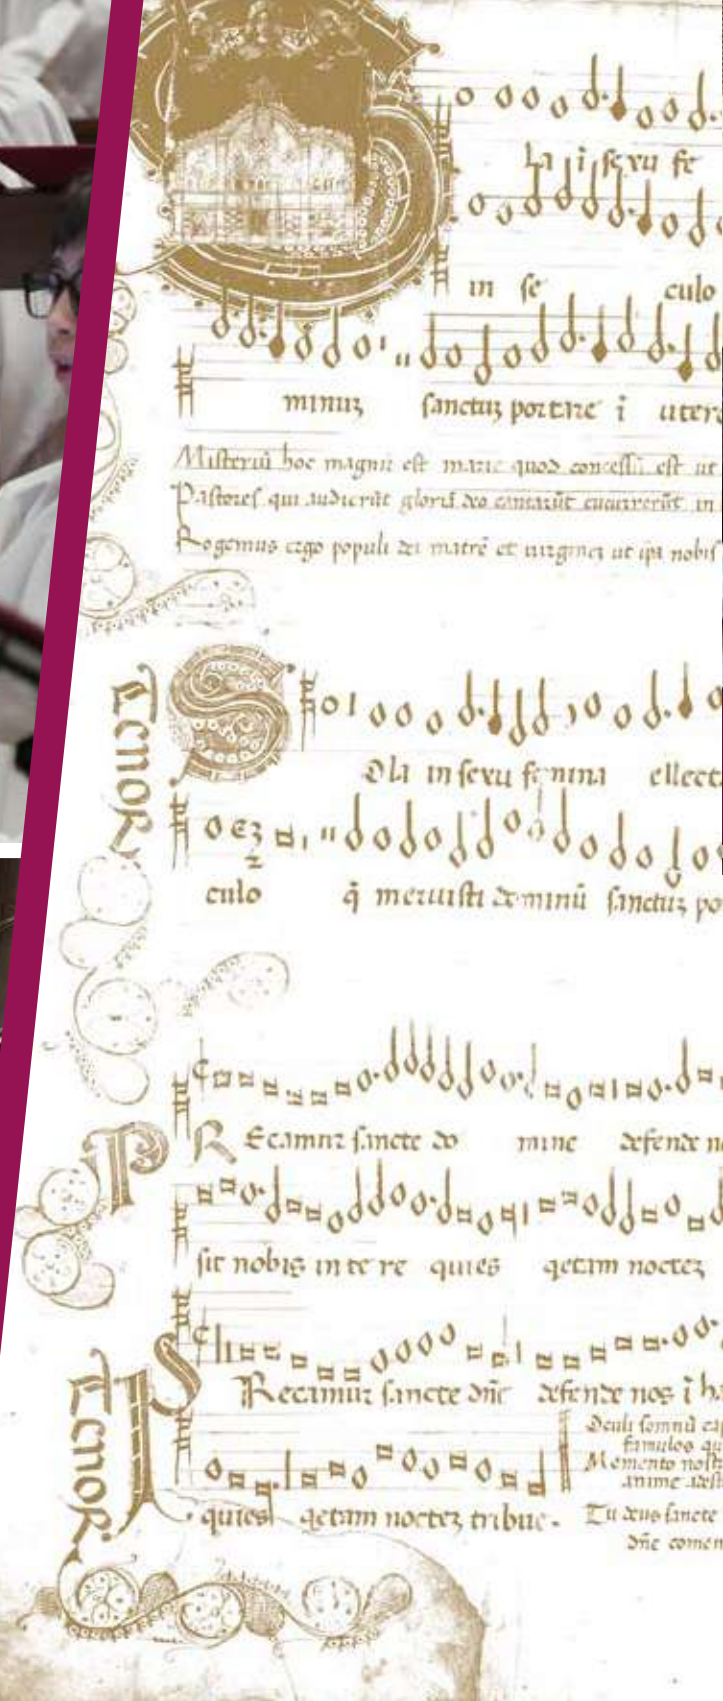 la ī sexu fe
in se culo
minuz sanctuz portare ī utero
Misteriū hoc magnū est marie quod concessū est ut
Pastores qui audierūt gloriā deo cantarūt cucurrerūt in
Rogemus ergo populi dei matrē et virginez ut ipa nobis
TENOR
S
Ola in sexu femina ellecta
culo q̄ meruisti dominū sanctuz po
P
REcamuz sancte do mine defende n
sit nobis in te re quies qetam noctez
TENOR
P
Recamuz sancte dn̄e defende nos ī h
quies qetam noctez tribue.
Oculi somnū cap
famulos qu
Memento nost
anime
Tu deus sancte
dn̄e comen